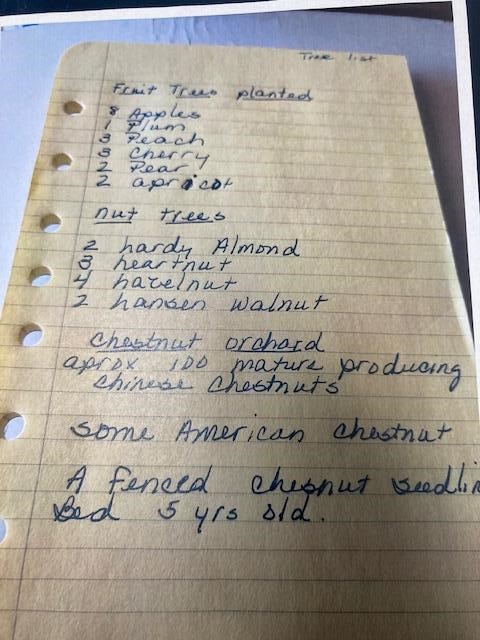 Tree list
Fruit Trees planted
8 Apples
1 Plum
3 Peach
3 Cherry
2 Pear
2 apricot
nut trees
2 hardy Almond
3 heartnut
4 hazelnut
2 hansen walnut
chestnut orchard
aprox 100 mature producing
chinese chestnuts
some American chestnut
A fenced chesnut seedlin
Bed 5 yrs old.